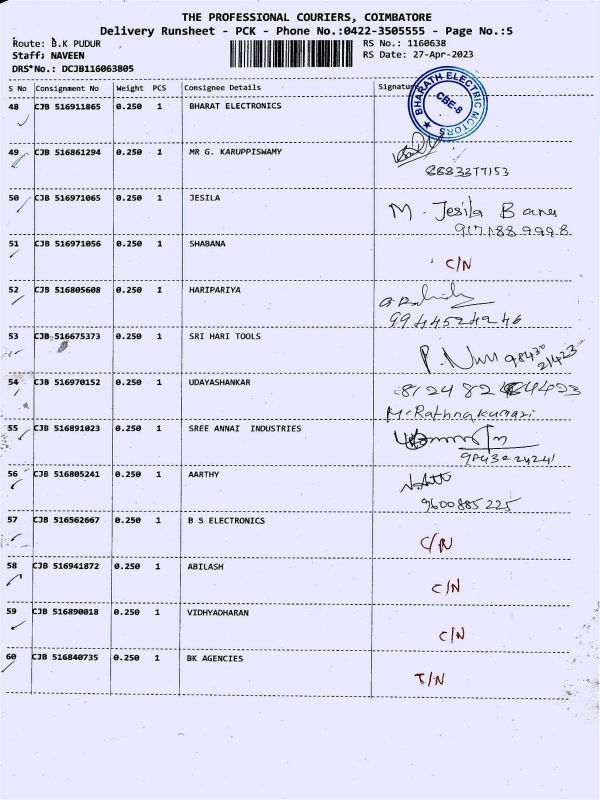 THE PROFESSIONAL COURIERS, COIMBATORE
Delivery Runsheet - PCK - Phone No.:0422-3505555 - Page No.:5
Route: B.K PUDUR RS No.: 1160638
Staff: NAVEEN RS Date: 27-Apr-2023
DRS No.: DCJB116063805
S No Consignment No Weight PCS Consignee Details Signature
BHARATH ELECTRIC MOTORS ★ CBE-8
48 CJB 516911865 0.250 1 BHARAT ELECTRONICS
49 CJB 516861294 0.250 1 MR G. KARUPPISWAMY
8883377153
50 CJB 516971065 0.250 1 JESILA M. Jesila Banu
9171889998
51 CJB 516971056 0.250 1 SHABANA C/N
52 CJB 516805608 0.250 1 HARIPARIYA
9944524246
53 CJB 516675373 0.250 1 SRI HARI TOOLS
54 CJB 516970152 0.250 1 UDAYASHANKAR
M. Rathnakumari
55 CJB 516891023 0.250 1 SREE ANNAI INDUSTRIES
56 CJB 516805241 0.250 1 AARTHY
9600885225
57 CJB 516562667 0.250 1 B S ELECTRONICS C/N
58 CJB 516941872 0.250 1 ABILASH C/N
59 CJB 516890018 0.250 1 VIDHYADHARAN C/N
60 CJB 516840735 0.250 1 BK AGENCIES T/N